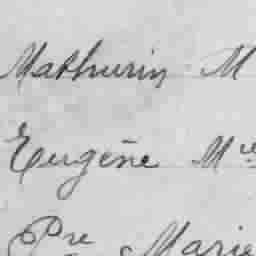 Mathurin M
Eugène Mie
Pre Marie